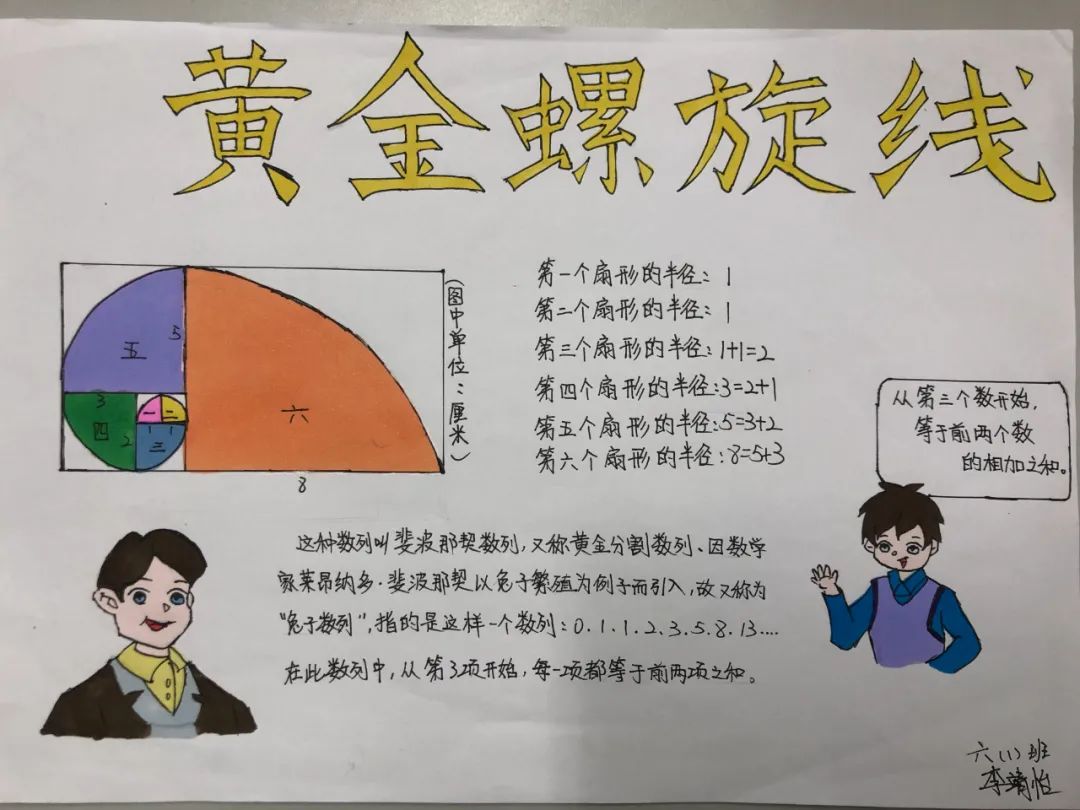 黄金螺旋线
第一个扇形的半径：1
第二个扇形的半径：1
第三个扇形的半径：1+1=2
第四个扇形的半径：3=2+1
第五个扇形的半径：5=3+2
第六个扇形的半径：8=5+3
（图中单位：厘米）
五
5
3
四
2
一
二
1
1
三
六
8
从第三个数开始，
等于前两个数
的相加之和。
这种数列叫斐波那契数列，又称黄金分割数列、因数学
家莱昂纳多·斐波那契以兔子繁殖为例子而引入，故又称为
“兔子数列”，指的是这样一个数列：0.1.1.2.3.5.8.13....
在此数列中，从第3项开始，每一项都等于前两项之和。
六（1）班
李靖怡